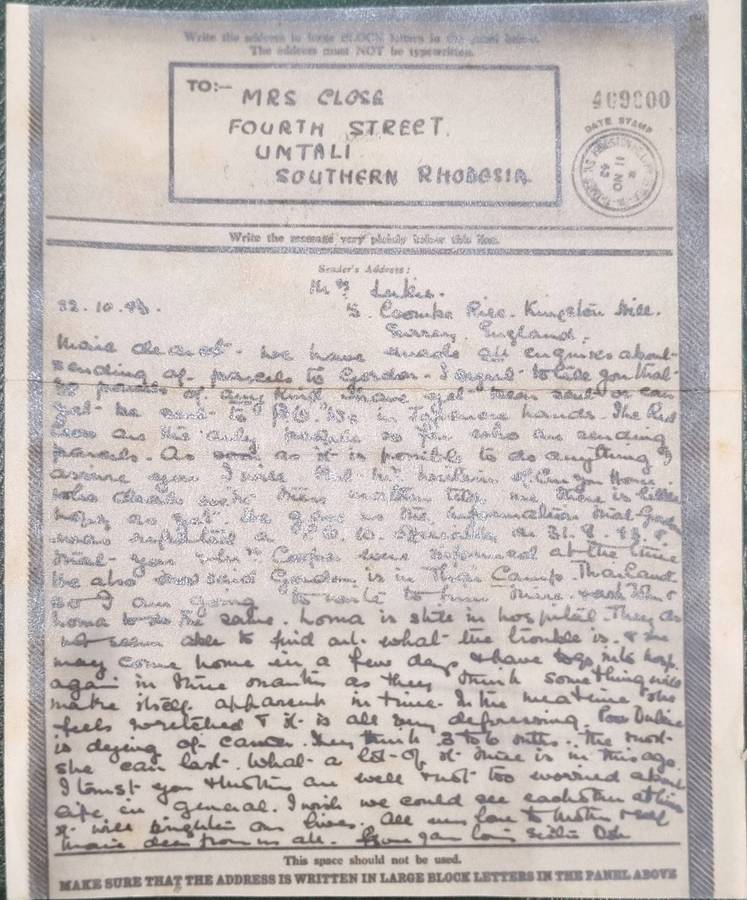 Write the address in large BLOCK letters in the panel below.
The address must NOT be typewritten.
TO:—
MRS CLOSE
FOURTH STREET.
UMTALI
SOUTHERN RHODESIA.
409800
DATE STAMP
11 NO
43
Write the message very plainly below this line.
Sender's Address:
Mrs Lukis.
5. Coombe Rise. Kingston Hill.
22.10.43.
Surrey England.
dearest. We have made all enquiries about
sending of parcels to Gordon. I regret to tell you that
no parcels of any kind have yet been sent or can
yet be sent to P.O.Ws in Japanese hands. The Red
Cross are the only people so far who are sending
parcels. As soon as it is possible to do anything I
assure you I will
who deals with these matters tells me there is little
hope as yet. He gave us the information that Gordon
was reported a P.O.W. on 31.8.43.
that you were informed at the time
He also said Gordon is in Thai Camp. Thailand
so I am going to write to him there.
to do the same. Loma is still in hospital. They do
not seem able to find out what the trouble is. & she
may come home in a few days & have to go into hosp.
again in three months as they think something will
make itself apparent in time. In the meantime she
feels wretched & it is all very depressing. Poor
is dying of cancer. They think 3 to 6 mths. the most
she can last. What a lot of it there is in this age.
I trust you & are well & not too worried about
life in general. I wish we could see each other
it will brighten our lives. All my love to
dear from us all. loving
This space should not be used.
MAKE SURE THAT THE ADDRESS IS WRITTEN IN LARGE BLOCK LETTERS IN THE PANEL ABOVE